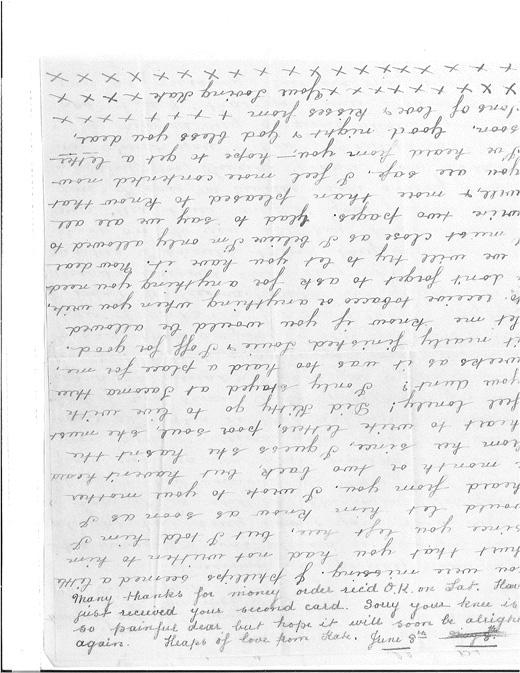 you were missing. J phillips seemed a little
hurt that you had not written to him
since you left here, but I told him I
would let him know as soon as I
heard from you. I wrote to your mother
a month or two back but haven't heard
from her since, I guess she hasn't the
heart to write letters, poor soul, she must
feel lonely! Did Kitty go to live with
your Aunt? I only stayed at Tacoma three
weeks as it was too hard a place for me,
it nearly finished Louie & I off good.
Let me know if you would be allowed
to receive tobacco or anything when you write,
& don't forget to ask for anything you need
we will try to let you have it. Now dear
I must close as I believe I'm only allowed to
write two pages. Glad to say we are all
well, & more than pleased to know that
you are safe. I feel more contented now
I've heard from you, – hope to get a letter
soon, Good night & God bless you dear,
Tons of love & kisses from + + + + + + +
x x x x x x x Your Loving Kate x x x
x x x x x x x x x x x x x x x x x x x x
Many thanks for money order rec'd O.K. on Sat. Have
just received your second card. Sorry your knee is
so painful dear but hope it will soon be alright
again. Heaps of love from Kate. June 8th